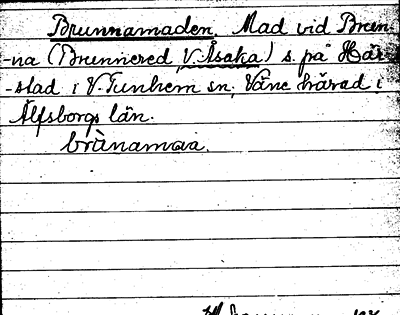 Brunnamaden. Mad vid Brun-
-na (Brunnered, V. Åsaka) s. på Här-
-stad i V. Tunhem sn, Väne härad i
Älfsborgs län.
brùnamaa.